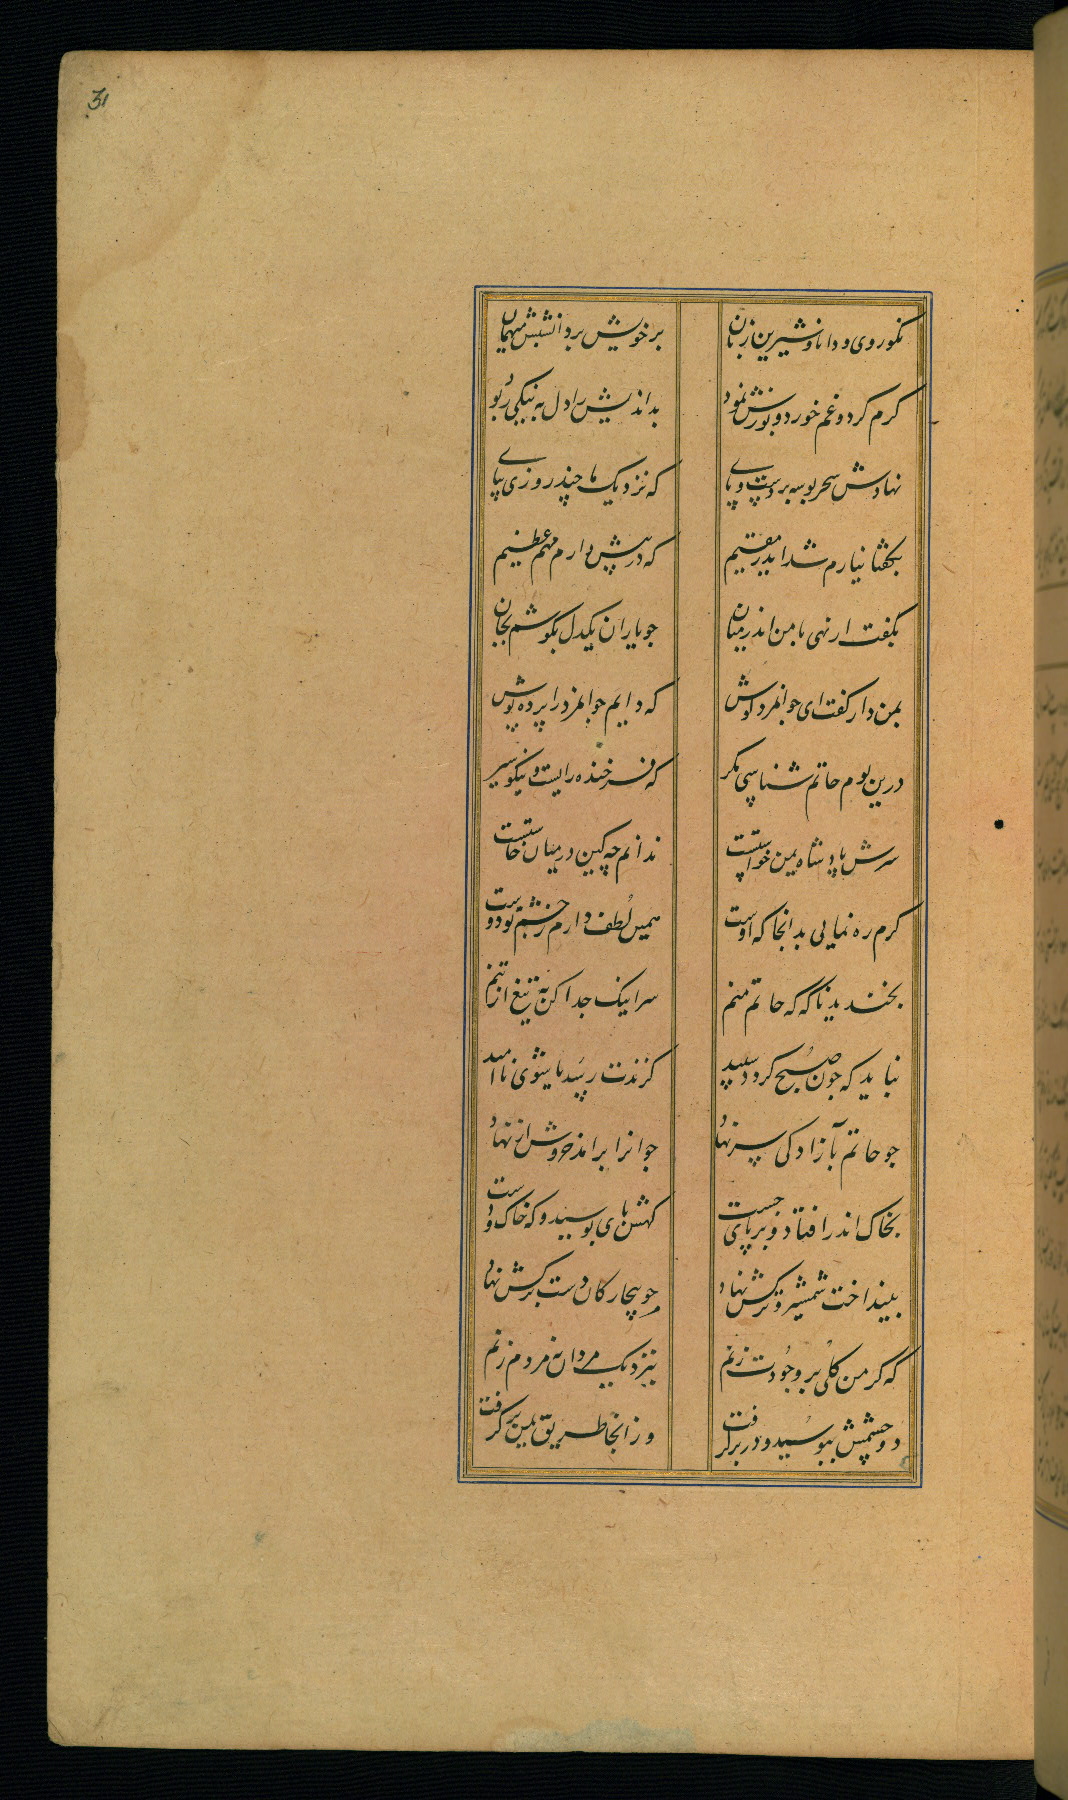 31
نکوروی و دانا و شیرین زبان بر خویش برد آنشبش میهمان
کرم کرد و غم خورد و پوزش نمود بداندیش را دل به نیکی ربود
نهادش سحر بوسه بر دست و پای که نزدیک ما چند روزی بپای
بگفتا نیارم شد ایدر مقیم که در پیش دارم مهم عظیم
بگفت ار نهی با من اندر میان چو یاران یکدل بکوشم بجان
بمن دار گفت ای جوانمرد گوش که دایم جوانمرد را پرده پوش
درین بوم حاتم شناسی مگر که فرخنده رایست و نیکو سیر
سرش پادشاه یمن خواستست ندانم چه کین در میان خاستست
کرم ره نمایی بدانجا که اوست همین لطف دارم ز چشم تو دوست
بخندید ناگه که حاتم منم سر اینک جدا کن به تیغ از تنم
نباید که چون صبح گردد سپید گزندت رسد یا شوی ناامید
چو حاتم بآزادگی سر نهاد جوانرا برآمد خروش از نهاد
بخاک اندر افتاد و بر پای جست گهش پای بوسید و گه خاک و دست
بینداخت شمشیر و ترکش نهاد چو بیچارگان دست بر کش نهاد
که گر من گلی بر وجودت زنم بنزدیک مردان نه مردم زنم
دو چشمش ببوسید و در بر گرفت وز آنجا طریق یمن بر گرفت